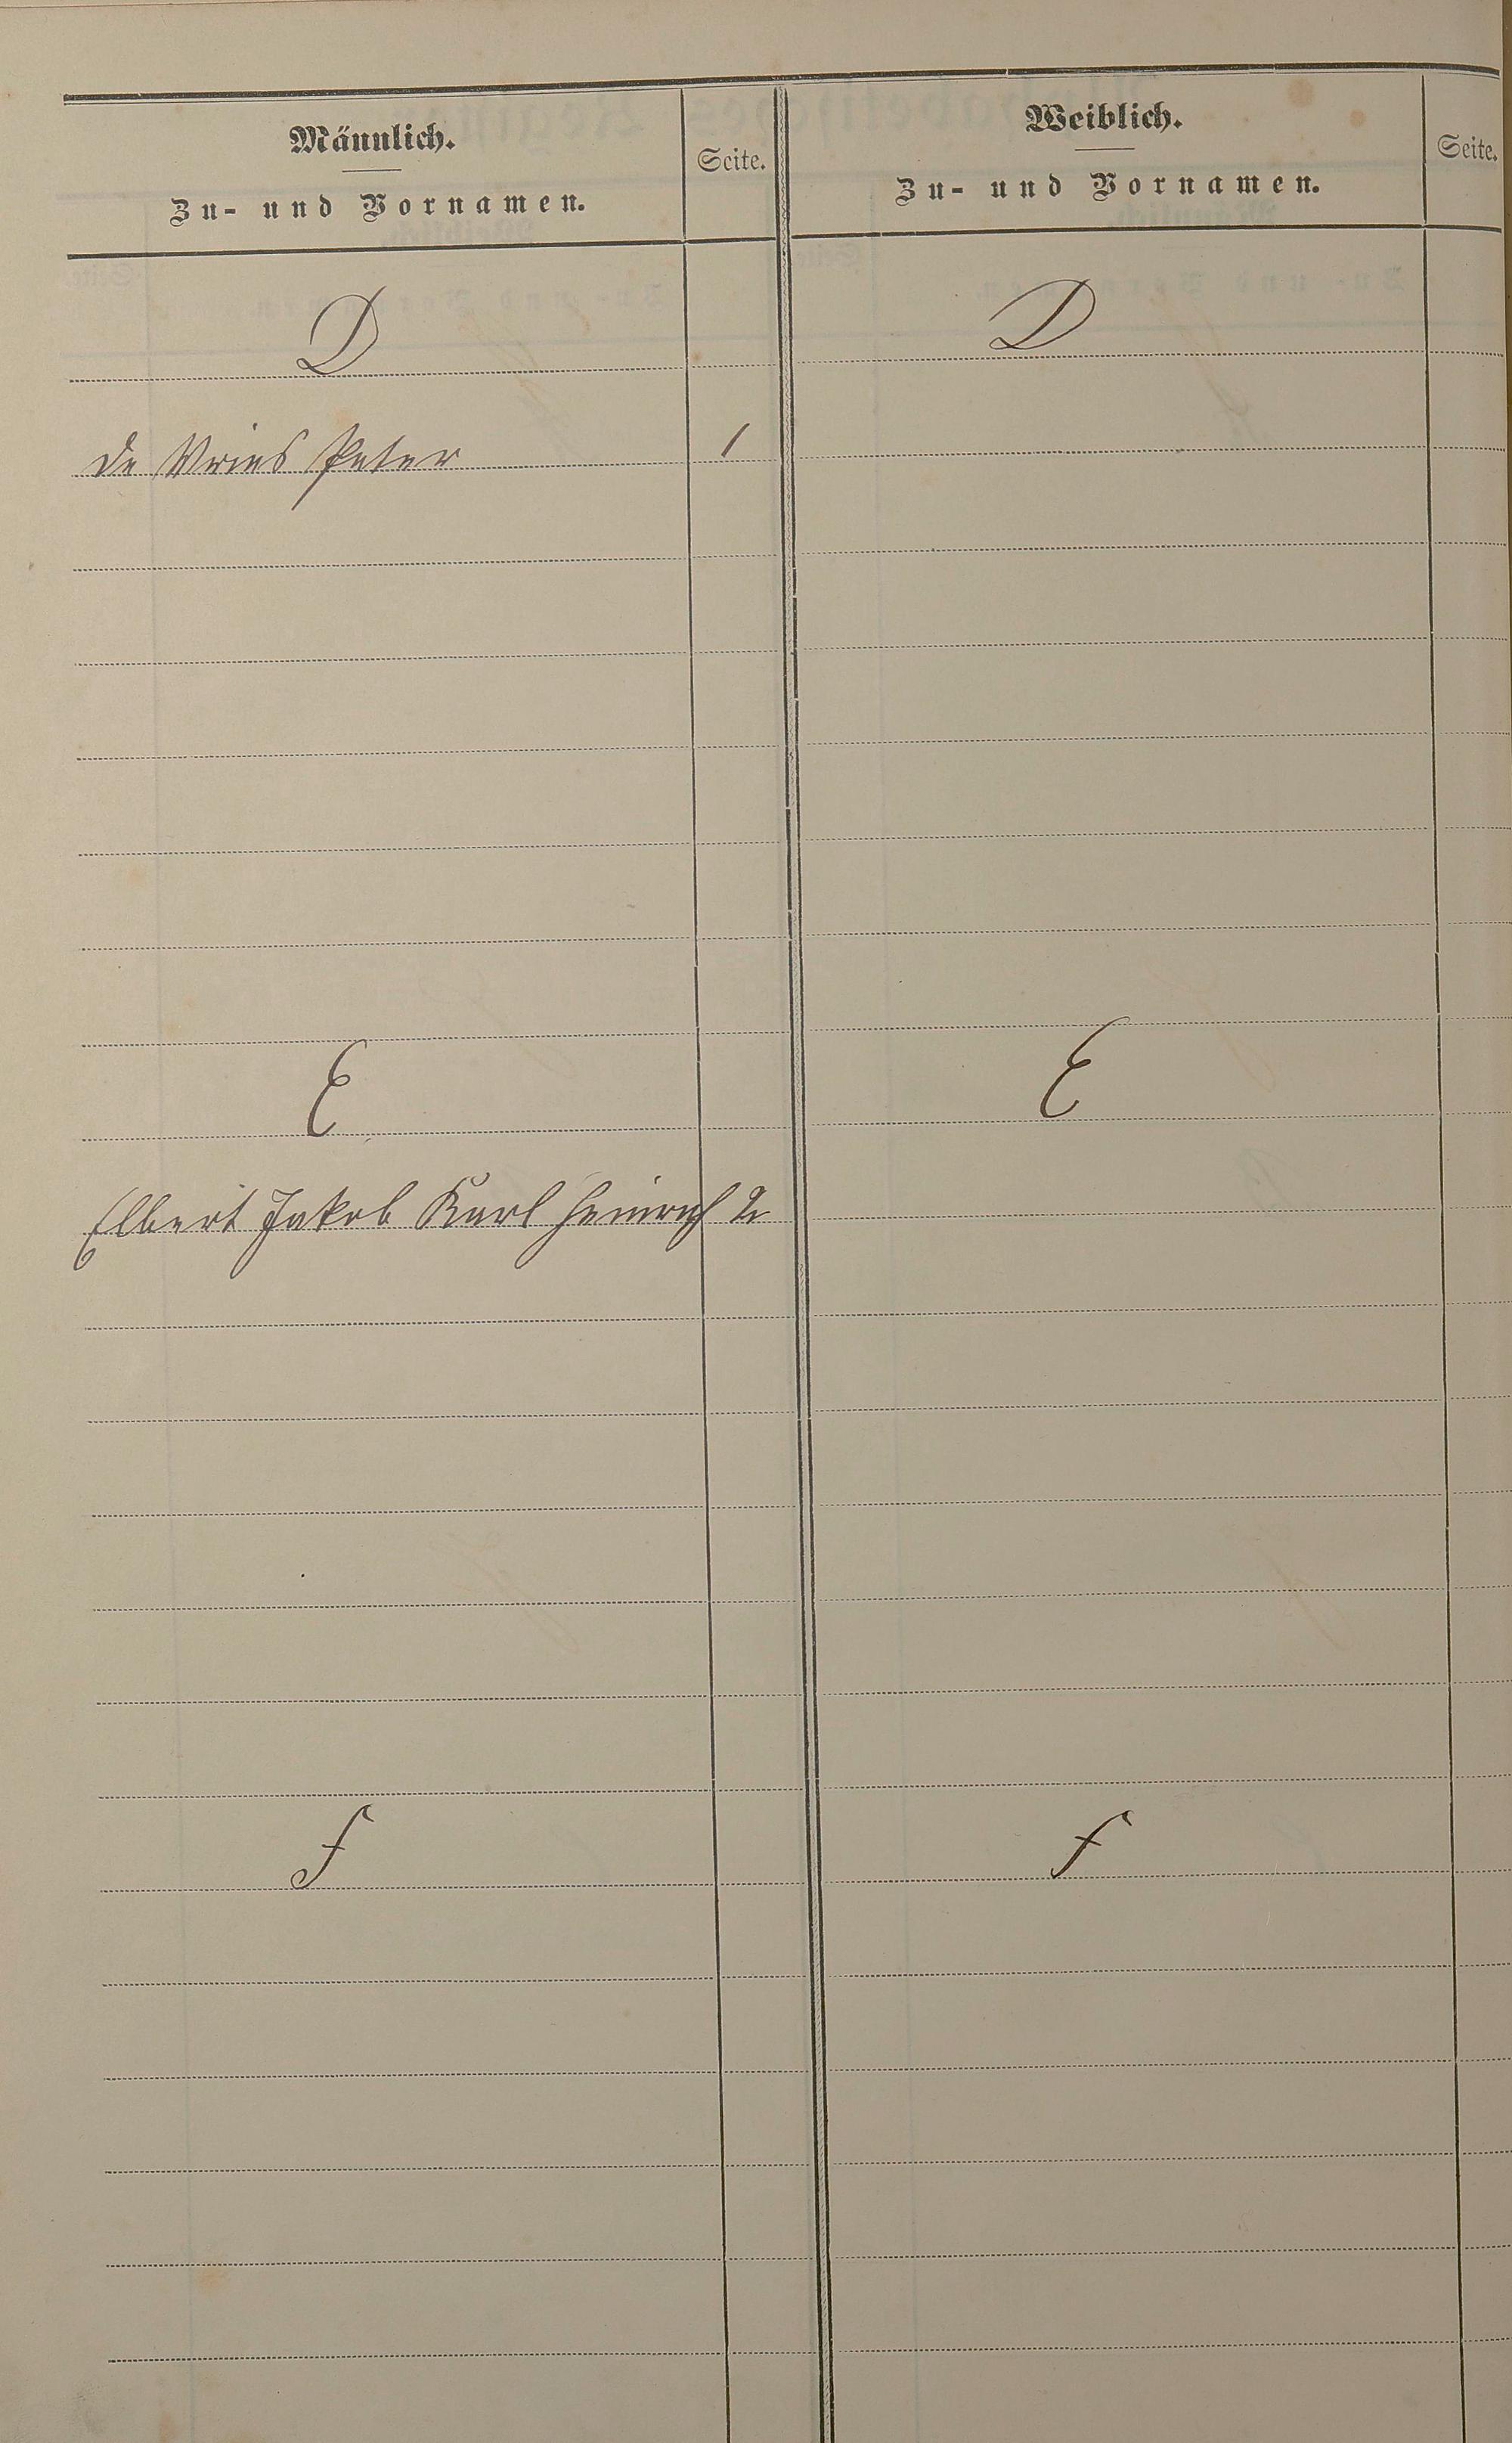 Männlich.
Zu- und Vornamen.
Seite.
Weiblich.
Zu- und Vornamen.
Seite.
D
D
de Vries Peter 1
E
E
Elbert Jakob Karl Heinrich 2
F
F